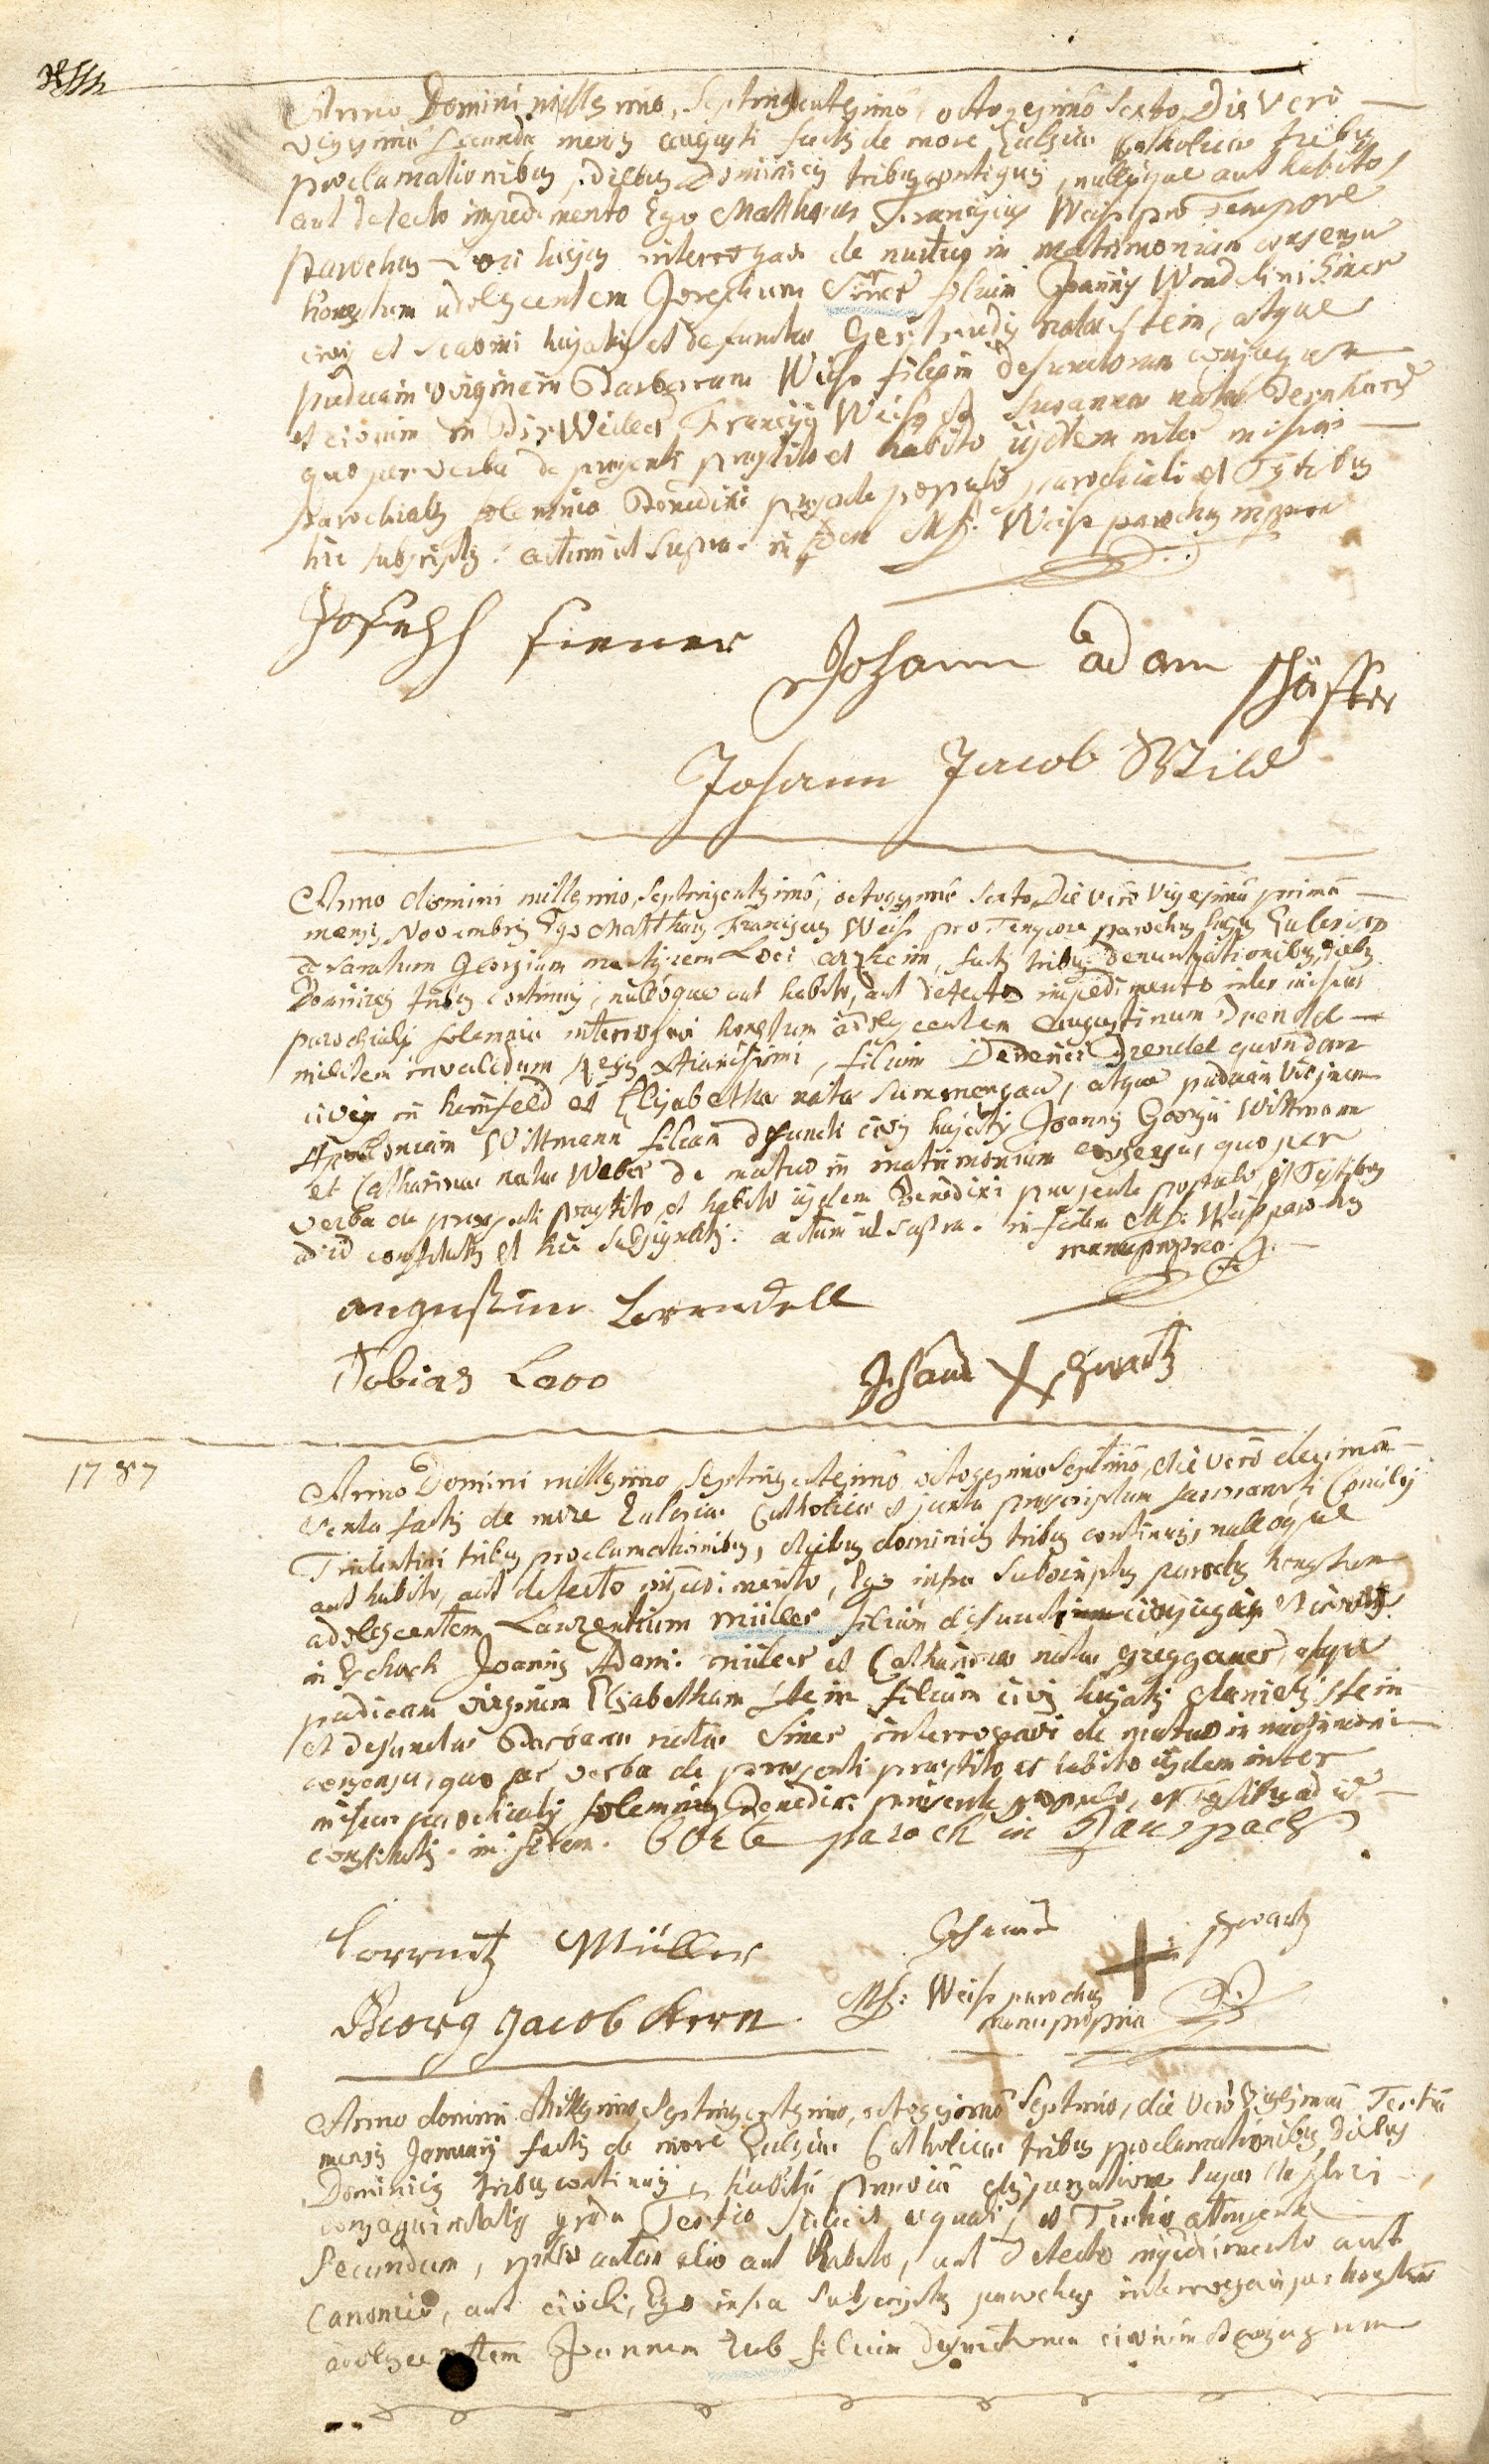 Anno Domini millesimo, septingentesimo, octogesimo sexto, Die vero
vigesima secunda mensis augusti factis de more Ecclesiae Catholicae tribus
proclamationibus, diebus Dominicis tribus continuis, nulloque aut habito,
aut detecto impedimento Ego Matthaeus Franciscus Weiss pro Tempore
parochus Loci hujus interrogavi de mutuo in matrimonium consensu
honestum adolescentem Josephum Siner filium Joannis Wendelini Siner
civis et scabini hujatis et defunctae Gertrudis natae Stein, atque
pudicam virginem Barbaram Weiss filiam defunctorum conjugum
et civium in Disweiler Francisci Weiss et Susanna nata Bernhard
quo per verba de praesenti praestito et habito iisdem inter missae
parochialis solemnia Benedixi praesente populo parochiali et Testibus
hic subscriptis. actum ut supra. in fidem Mf: Weiss parochus mppria
Joseph finner
Johann adam schäffer
Johann Jacob Wild
Anno domini millesimo, septingentesimo, octogesimo sexto, Die vero vigesima prima
mensis Novembris Ego Matthaeus Franciscus Weiss pro Tempore parochus hujus Ecclesiae
ad sanctum Georgium martyrem Loci, factis tribus denuntiationibus, diebus
Dominicis tribus continuis, nulloque aut habito, aut detecto impedimento inter missae
parochialis solemnia interrogavi honestum adolescentem augustinum Drendel
militem invalidum Regis Xtianissimi, filium Drendel quondam
civis in heinfeld et Elisabetha nata, atque pudicam virginem
Apolloniam Wittmann filiam defuncti civis hujatis Joannis Georgii Wittmann
et Catharinae natae Weber de mutuo in matrimonium consensu, quo per
verba de praesenti praestito, et habito iisdem Benedixi praesente populo, et Testibus
ad id constitutis et hic subsignatis. actum ut supra. in fidem Mf: Weiss parochus
manupropria
augustin
Tobias Lavo
Johanes X schwartz
1787
Anno Domini millesimo septingentesimo octogesimo septimo, die vero decima
factis de more Ecclesiae Catholicae et juxta praescriptum sacrosancti Concilij
Tridentini tribus proclamationibus, diebus dominicis tribus continuis, nulloque
aut habito, aut detecto impedimento, Ego infra subscriptus parochus honestum
adolescentem Laurentium müller filium conjugum et civium
in Joannis Adami müller et Catharinae natae, atque
pudicam virginem Elisabetham Stein filiam civis hujatis danielis stein
et defunctae Barbarae natae Siner interrogavi de mutuo in matrimonium
consensu, quo per verba de praesenti praestito et habito iisdem inter
missae parochialis solemnia Benedixi praesente populo, et Testibus ad id
constitutis. in fidem. paroch in
Lorrentz Müller
Johannes + schwartz
Georg Jacob Kern
Mf: Weiss parochus
manu propria
Anno domini Millesimo septingentesimo, octogesimo septimo, die vero Vigesima Tertia
mensis Januarij factis de more Ecclesiae Catholicae tribus proclamationibus, diebus
Dominicis tribus continuis, habita praevia dispensatione super
consanguinitatis gradu Tertio scilicet aequali, et Tertio attingente
secundum, nullo autem alio aut habito, aut detecto impedimento aut
canonico, aut civili, Ego infra subscriptus parochus interrogavi honestum
adolescentem Joannem filium defunctorum civium et conjugum